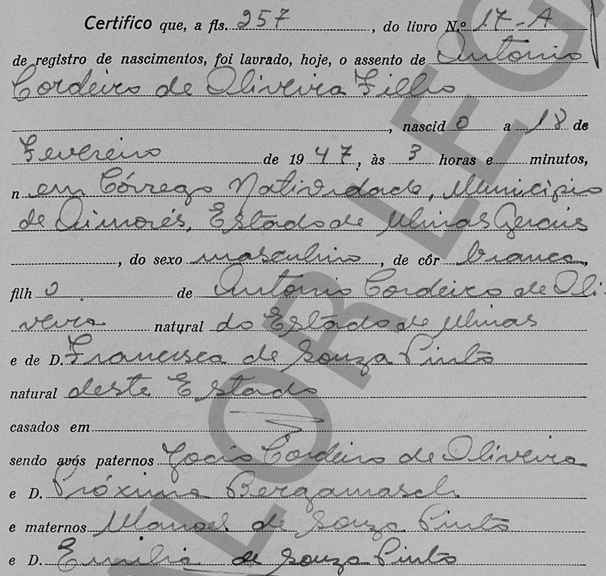 Certifico que, a fls. 257, do livro N.º 17-A
de registro de nascimentos, foi lavrado, hoje, o assento de Antonio
Cordeiro de Oliveira Filho
, nascido a 18 de
Fevereiro de 1947, às 3 horas e minutos,
n em Córrego Natividade, Municipio
de Aimorés, Estado de Minas Gerais
, do sexo masculino, de côr branca,
filho de Antonio Cordeiro de Oli-
veira natural do Estado de Minas
e de D. Francisca de Souza Pinto
natural deste Estado
casados em
sendo avós paternos João Cordeiro de Oliveira
e D. Próxima Bergamasch
e maternos Manoel de Souza Pinto
e D. Emilia de Souza Pinto